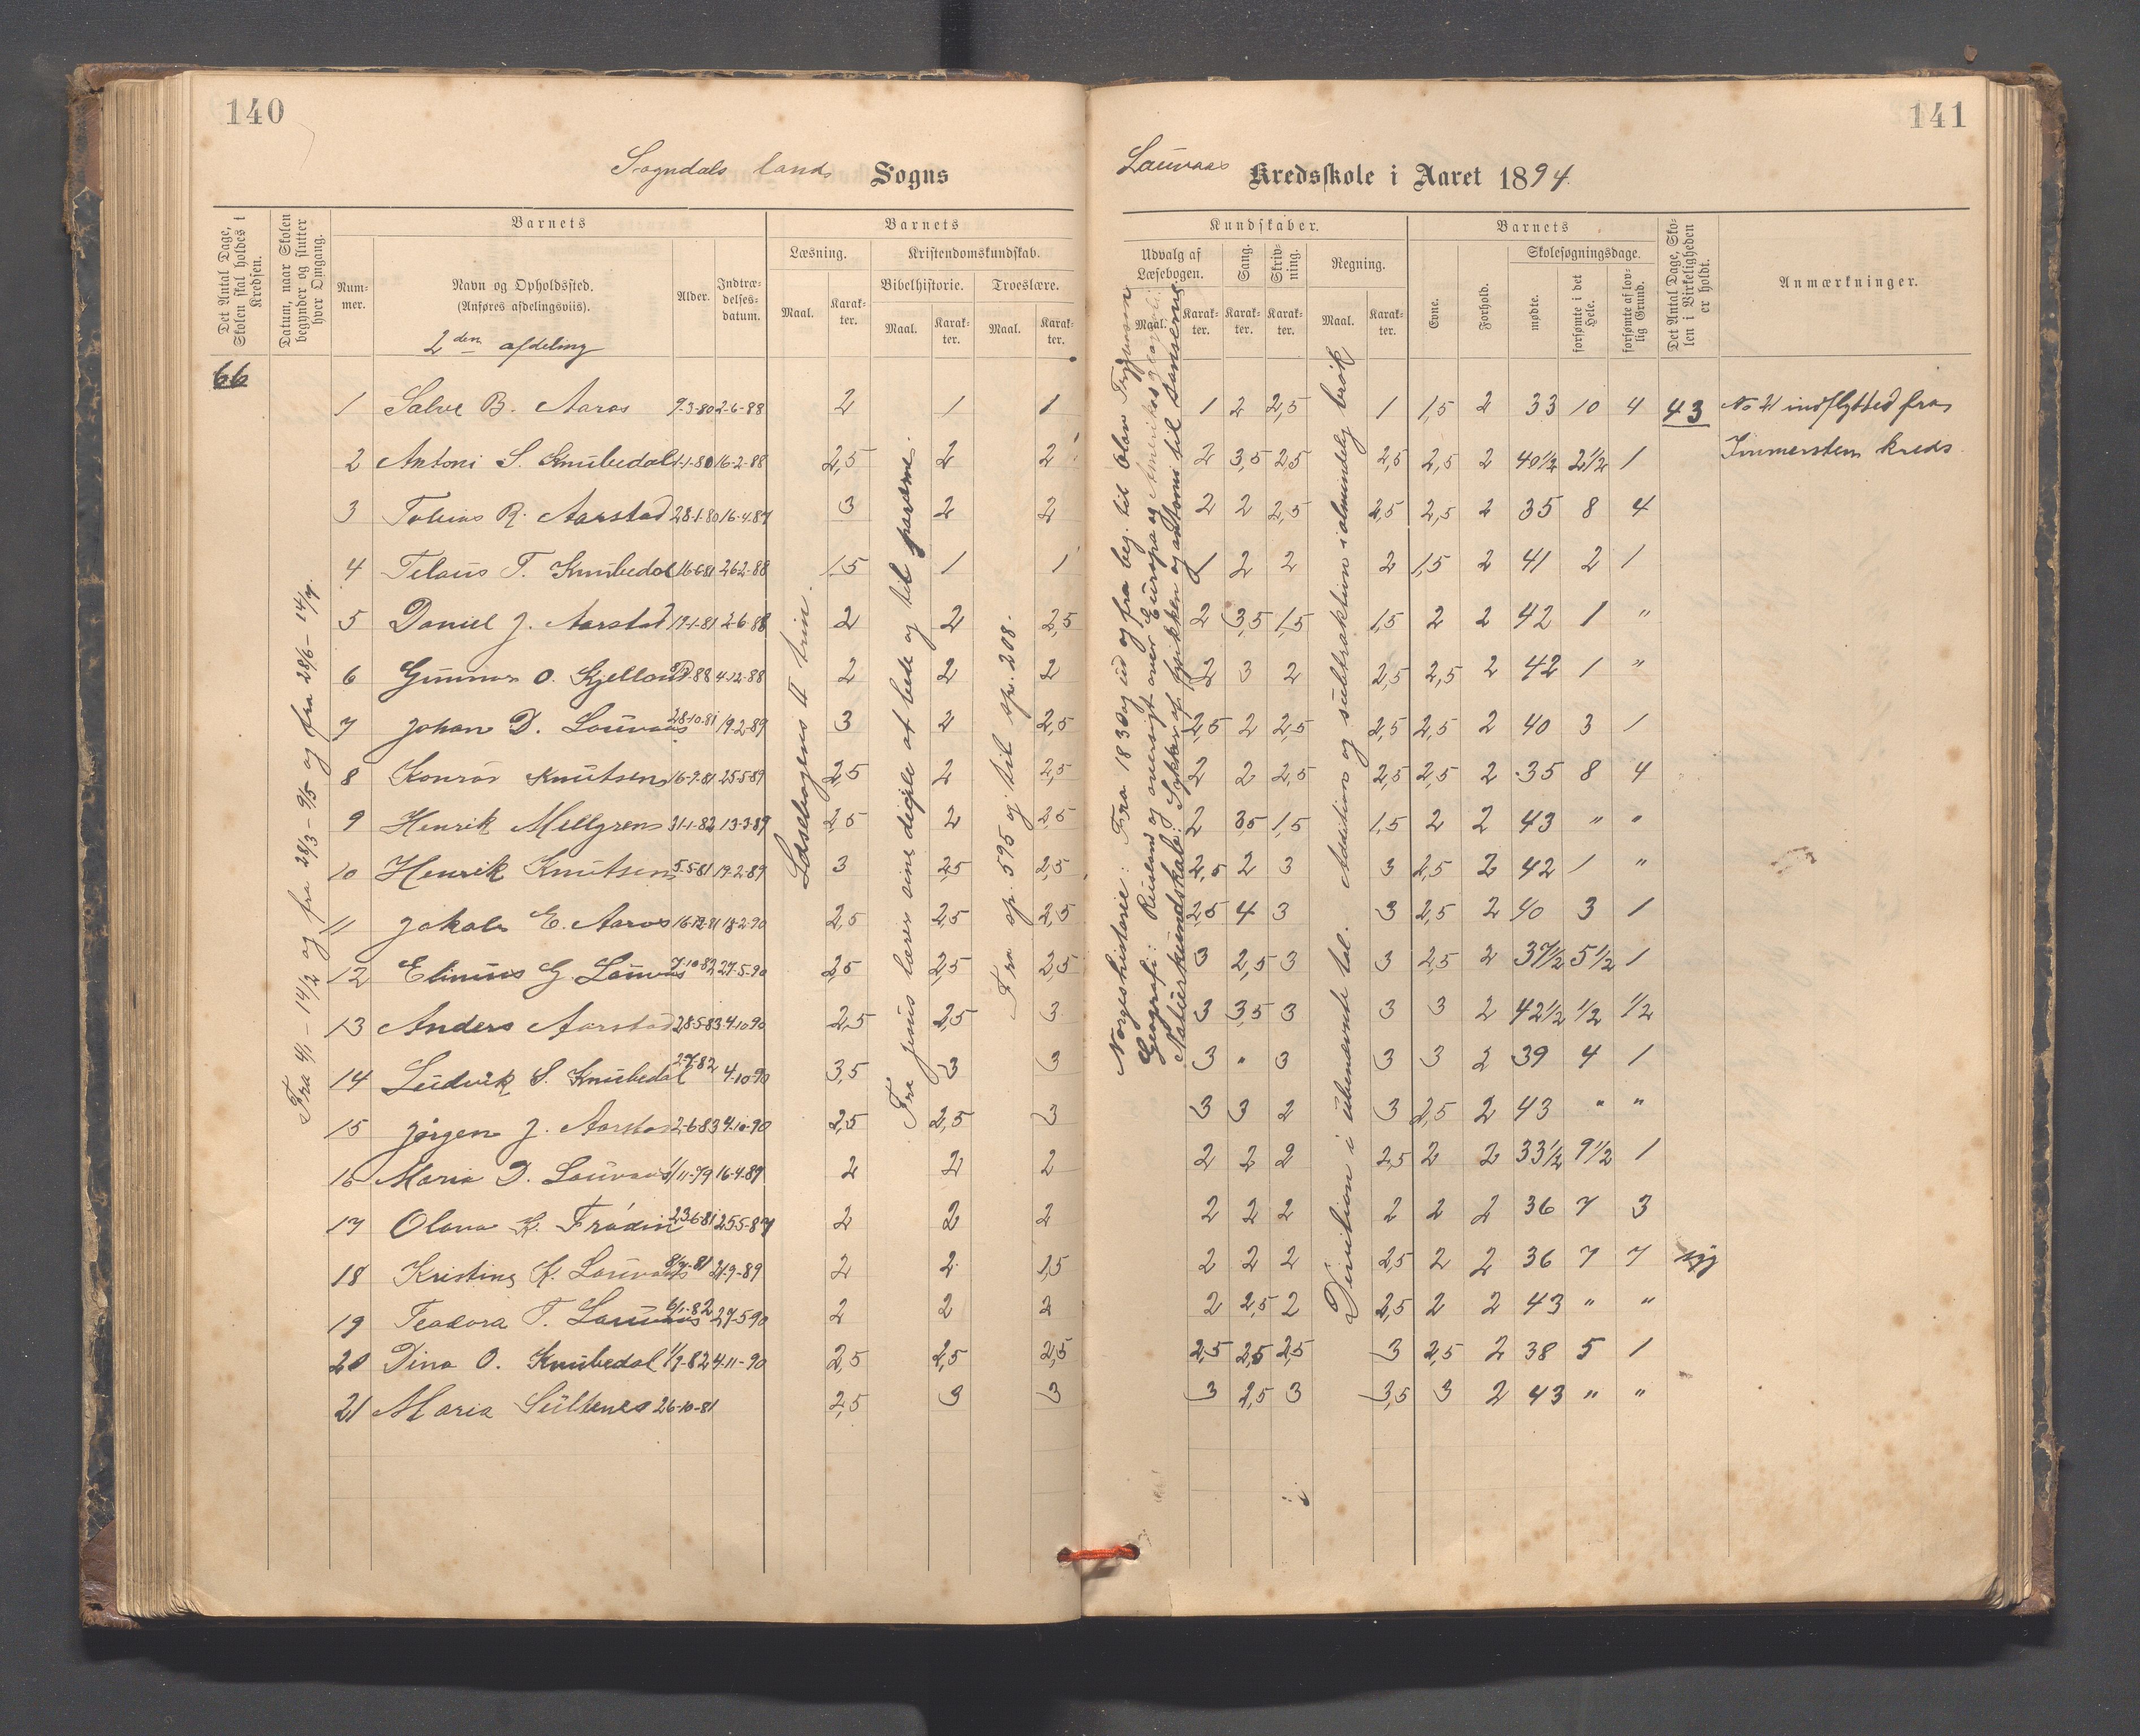 140
Sogndals lands Sogns
Det Antal Dage, Skolen skal holdes i Kredsen.
Datum, naar Skolen begynder og slutter hver Omgang.
Barnets
Barnets
Nummer.
Navn og Opholdssted.
(Anføres afdelingsviis).
Alder.
Indtrædelsesdatum.
Læsning.
Kristendomskundskab.
Bibelhistorie.
Troeslære.
Maal.
Karakter.
Maal.
Karakter.
Maal.
Karakter.
2den afdeling
66
Fra 4/1 - 14/2 og fra 28/3 - 9/5 og fra 28/6 - 14/7.
Læsebogens II trin.
Fra Jesus lærer sine diciple at bede og til påverne.
Fra sp. 595 og til sp. 208.
1 Salve B. Aaros 9-3-80 2-6-88 2 1 1
2 Antoni S. Knubedal 1-1-80 16-2-88 2,5 2 2
3 Tobias R. Aarstad 28-1-80 16-4-87 3 2 2
4 Telaus T. Knubedal 16-6-81 26-2-88 1,5 1 1
5 Daniel J. Aarstad 19-1-81 2-6-88 2 2 2,5
6 Gunnar O. Kjelland 88 4-12-88 2 2 2
7 Johan D. Louvaas 28-10-81 19-2-89 3 2 2,5
8 Konrad Knutsen 16-9-81 25-5-89 2,5 2 2,5
9 Henrik Mellgren 31-1-82 13-3-89 2,5 2 2,5
10 Henrik Knutsen 5-5-81 19-2-89 3 2,5 2,5
11 Jakob E. Aaros 16-12-81 18-2-90 2,5 2,5 2,5
12 Elinius G. Louvaas 7-10-82 27-5-90 2,5 2,5 2,5
13 Anders Aarstad 28-5-83 4-10-90 2,5 2,5 3
14 Ludvik S. Knubedal 2-7-82 4-10-90 3,5 3 3
15 Jørgen J. Aarstad 2-6-83 4-10-90 2,5 2,5 3
16 Maria D. Louvaas 1/11-79 16-4-87 2 2 2
17 Olava K. Frödin 23-6-81 25-5-87 2 2 2
18 Kristine K. Louvaas 8/7-81 21-9-89 2 2 1,5
19 Teodora T. Louvaas 6/1-82 27-5-90 2 2 2
20 Dina O. Knubedal 1/9-82 4-11-90 2,5 2,5 2,5
21 Maria Sültenes 26-10-81 2,5 3 3
141
Louvaas Kredsskole i Aaret 1894.
Kundskaber.
Barnets
Udvalg af Læsebogen.
Sang.
Skrivning.
Regning.
Evne.
Forhold.
Skolesøgningsdage.
Det Antal Dage, Skolen i Virkeligheden er holdt.
Anmærkninger.
Maal.
Karakter.
Karakter.
Karakter.
Maal.
Karakter.
mødte.
forsømte i det Hele.
forsømte af lovlig Grund.
Norgeshistorie: Fra 1830 og ud og fra beg. til Olav Trygvason
Geografi: Rusland og oversigt over Europa og Amerikas
Naturkundskab: Stykker af fysikken og antomi til sanserne.
Division i ubenævnte tal. Addition og subtraktion i almindelig brøk
1 2 2,5 1 1,5 2 33 10 4 43 No 21 indflytted fra
2 3,5 2,5 2,5 2,5 2 40 1/2 2 1/2 1 Immersten kreds
2 2 2,5 2,5 2,5 2 35 8 4
1 2 2 2 1,5 2 41 2 1
2 3,5 1,5 1,5 2 2 42 1 "
2 3 2 2,5 2,5 2 42 1 "
2,5 2 2,5 2,5 2,5 2 40 3 1
2 2 2,5 2,5 2,5 2 35 8 4
2 3,5 1,5 1,5 2 2 43 " "
2,5 2 3 3 2,5 2 42 1 "
2,5 4 3 3 2,5 2 40 3 1
3 2,5 3 3 2,5 2 37 1/2 5 1/2 1
3 3,5 3 3 3 2 42 1/2 1/2 1/2
3 " 3 3 3 2 39 4 1
3 3 2 3 2,5 2 43 " "
2 2 2 2,5 2 2 33 1/2 9 1/2 1
2 2 2 2 2 2 36 7 3
2 2 2 2,5 2 2 36 7 7 syg
2 2,5 2 2,5 2 2 43 " "
2,5 2,5 2,5 3 2,5 2 38 5 1
3 2,5 3 3,5 3 2 43 " "